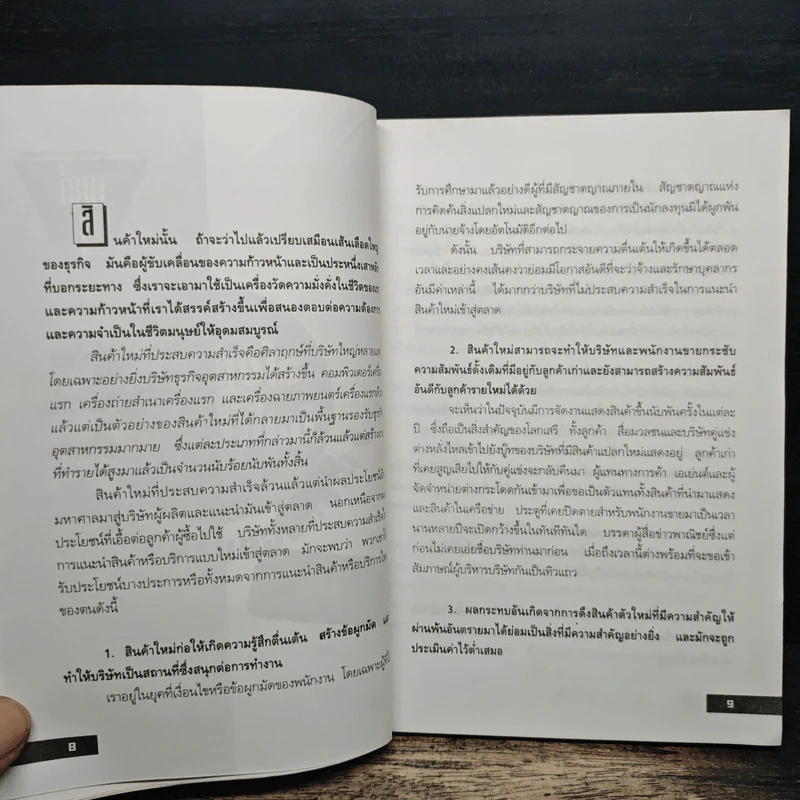 สินค้าใหม่นั้น ถ้าจะว่าไปแล้วเปรียบเสมือนเส้นเลือดใหญ่
ของธุรกิจ มันคือผู้ขับเคลื่อนของความก้าวหน้าและเป็นประหนึ่งเสาหลัก
ที่บอกระยะทาง ซึ่งเราจะเอามาใช้เป็นเครื่องวัดความมั่งคั่งในชีวิตของเรา
และความก้าวหน้าที่เราได้สรรค์สร้างขึ้นเพื่อสนองตอบต่อความต้องการ
และความจำเป็นในชีวิตมนุษย์ให้อุดมสมบูรณ์
สินค้าใหม่ที่ประสบความสำเร็จคือศิลาฤกษ์ที่บริษัทใหญ่หลาย
โดยเฉพาะอย่างยิ่งบริษัทธุรกิจอุตสาหกรรมได้สร้างขึ้น คอมพิวเตอร์เครื่อง
แรก เครื่องถ่ายสำเนาเครื่องแรก และเครื่องฉายภาพยนตร์เครื่องแรก
แล้วแต่เป็นตัวอย่างของสินค้าใหม่ที่ได้กลายมาเป็นพื้นฐานรองรับธุรกิจ
อุตสาหกรรมมากมาย ซึ่งแต่ละประเภทที่กล่าวมานี้ก็ล้วนแล้วแต่สร้าง
ที่ทำรายได้สูงมาแล้วเป็นจำนวนนับร้อยนับพันทั้งสิ้น
สินค้าใหม่ที่ประสบความสำเร็จล้วนแล้วแต่นำผลประโยชน์
มหาศาลมาสู่บริษัทผู้ผลิตและแนะนำมันเข้าสู่ตลาด นอกเหนือจาก
ประโยชน์ที่เอื้อต่อลูกค้าผู้ซื้อไปใช้ บริษัททั้งหลายที่ประสบความสำเร็จ
การแนะนำสินค้าหรือบริการแบบใหม่เข้าสู่ตลาด มักจะพบว่า พวกเขา
รับประโยชน์บางประการหรือทั้งหมดจากการแนะนำสินค้าหรือบริการ
ของตนดังนี้
1. สินค้าใหม่ก่อให้เกิดความรู้สึกตื่นเต้น สร้างข้อผูกมัด
ทำให้บริษัทเป็นสถานที่ซึ่งสนุกต่อการทำงาน
เราอยู่ในยุคที่เงื่อนไขหรือข้อผูกมัดของพนักงาน โดยเฉพาะผู้ที่
8
รับการศึกษามาแล้วอย่างดีผู้ที่มีสัญชาตญาณภายใน สัญชาตญาณแห่ง
การคิดค้นสิ่งแปลกใหม่และสัญชาตญาณของการเป็นนักลงทุนมิได้ผูกพัน
อยู่กับนายจ้างโดยอัตโนมัติอีกต่อไป
ดังนั้น บริษัทที่สามารถกระจายความตื่นเต้นให้เกิดขึ้นได้ตลอด
เวลาและอย่างคงเส้นคงวาย่อมมีโอกาสอันดีที่จะว่าจ้างและรักษาบุคลากร
อันมีค่าเหล่านี้ ได้มากกว่าบริษัทที่ไม่ประสบความสำเร็จในการแนะนำ
สินค้าใหม่เข้าสู่ตลาด
2. สินค้าใหม่สามารถจะทำให้บริษัทและพนักงานขายกระชับ
ความสัมพันธ์ดั้งเดิมที่มีอยู่กับลูกค้าเก่าและยังสามารถสร้างความสัมพันธ์
อันดีกับลูกค้ารายใหม่ได้ด้วย
จะเห็นว่าในปัจจุบันมีการจัดงานแสดงสินค้าขึ้นนับพันครั้งในแต่ละ
ปี ซึ่งถือเป็นสิ่งสำคัญของโลกเสรี ทั้งลูกค้า สื่อมวลชนและบริษัทคู่แข่ง
ต่างหลั่งไหลเข้าไปยังบู๊ทของบริษัทที่มีสินค้าแปลกใหม่แสดงอยู่ ลูกค้าเก่า
ที่เคยสูญเสียไปให้กับคู่แข่งจะกลับคืนมา ผู้แทนทางการค้า เอเย่นต์และผู้
จัดจำหน่ายต่างกระโดดกันเข้ามาเพื่อขอเป็นตัวแทนทั้งสินค้าที่นำมาแสดง
และสินค้าในเครือข่าย ประตูที่เคยปิดตายสำหรับพนักงานขายมาเป็นเวลา
นานหลายปีจะเปิดกว้างขึ้นในทันทีทันใด บรรดาผู้สื่อข่าวพาณิชย์ซึ่งแต่
ก่อนไม่เคยเอ่ยชื่อบริษัทท่านมาก่อน เมื่อถึงเวลานี้ต่างพร้อมที่จะขอเข้า
สัมภาษณ์ผู้บริหารบริษัทกันเป็นทิวแถว
3. ผลกระทบอันเกิดจากการดึงสินค้าตัวใหม่ที่มีความสำคัญให้
ผ่านพ้นอันตรายมาได้ย่อมเป็นสิ่งที่มีความสำคัญอย่างยิ่ง และมักจะถูก
ประเมินค่าไว้ต่ำเสมอ
9